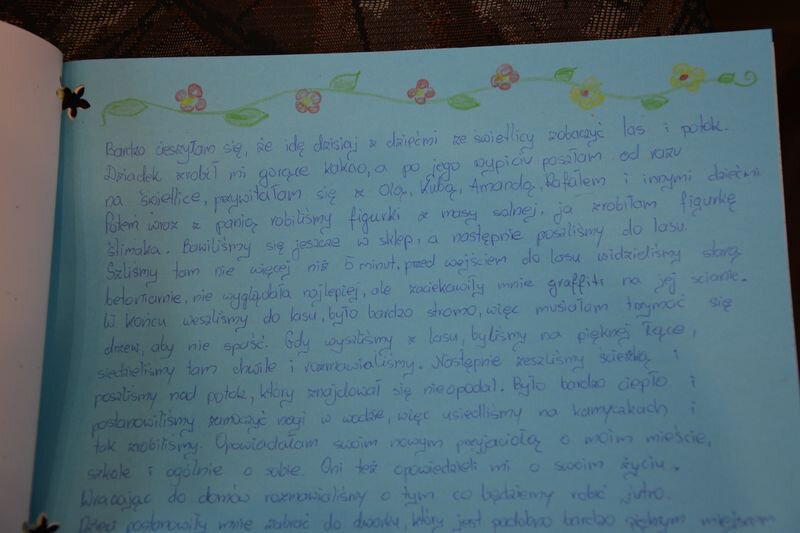 Bardzo cieszyłam się, że idę dzisiaj z dziećmi ze świetlicy zobaczyć las i potok.
Dziadek zrobił mi gorące kakao, a po jego wypiciu poszłam od razu
na świetlice, przywitałam się z Olą, Kubą, Amandą, Rafałem i innymi dziećmi
Potem wraz z panią robiliśmy figurki z masy solnej, ja zrobiłam figurkę
ślimaka. Bawiliśmy się jeszcze w sklep, a następnie poszliśmy do lasu.
Szliśmy tam nie więcej niż 5 minut, przed wejściem do lasu widzieliśmy starą
betoniarnie, nie wyglądała najlepiej, ale zaciekawiły mnie graffiti na jej ścianie.
W końcu weszliśmy do lasu, było bardzo stromo, więc musiałam trzymać się
drzew, aby nie spaść. Gdy wyszliśmy z lasu, byliśmy na pięknej łące,
siedzieliśmy tam chwile i rozmawialiśmy. Następnie zeszliśmy ścieżką i
poszliśmy nad potok, który znajdował się nieopodal. Było bardzo ciepło i
postanowiliśmy zamoczyć nogi w wodzie, więc usiedliśmy na kamyczkach i
tak zrobiliśmy. Opowiadałam swoim nowym przyjaciołą o moim mieście,
szkole i ogólnie o sobie. Oni też opowiedzieli mi o swoim życiu.
Wracając do domów rozmawialiśmy o tym co będziemy robić jutro.
Dzieci postanowiły mnie zabrać do dworku, który jest podobno bardzo pięknym miejscem